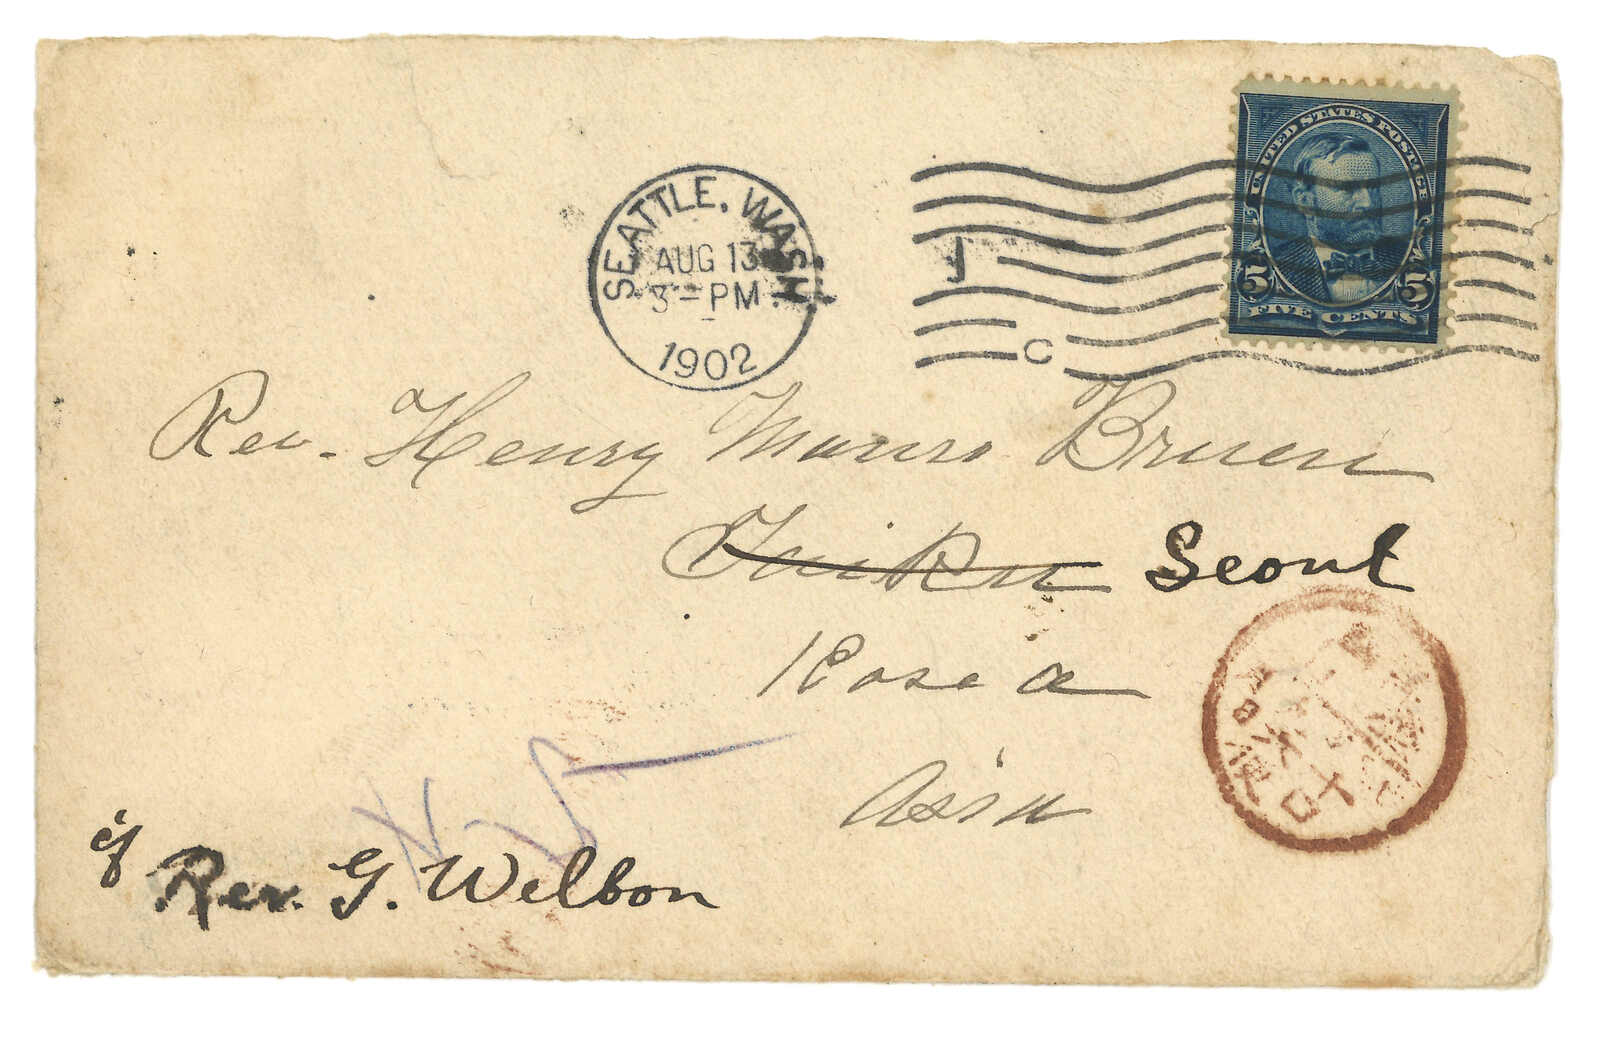 UNITED STATES POSTAGE
5 5
FIVE CENTS
SEATTLE, WASH.
AUG 13
3-PM
1902
J
C
Rev. Henry Munro Bruen
Taiku Seoul
Korea
Asia
c/o
Rev. G. Welbon